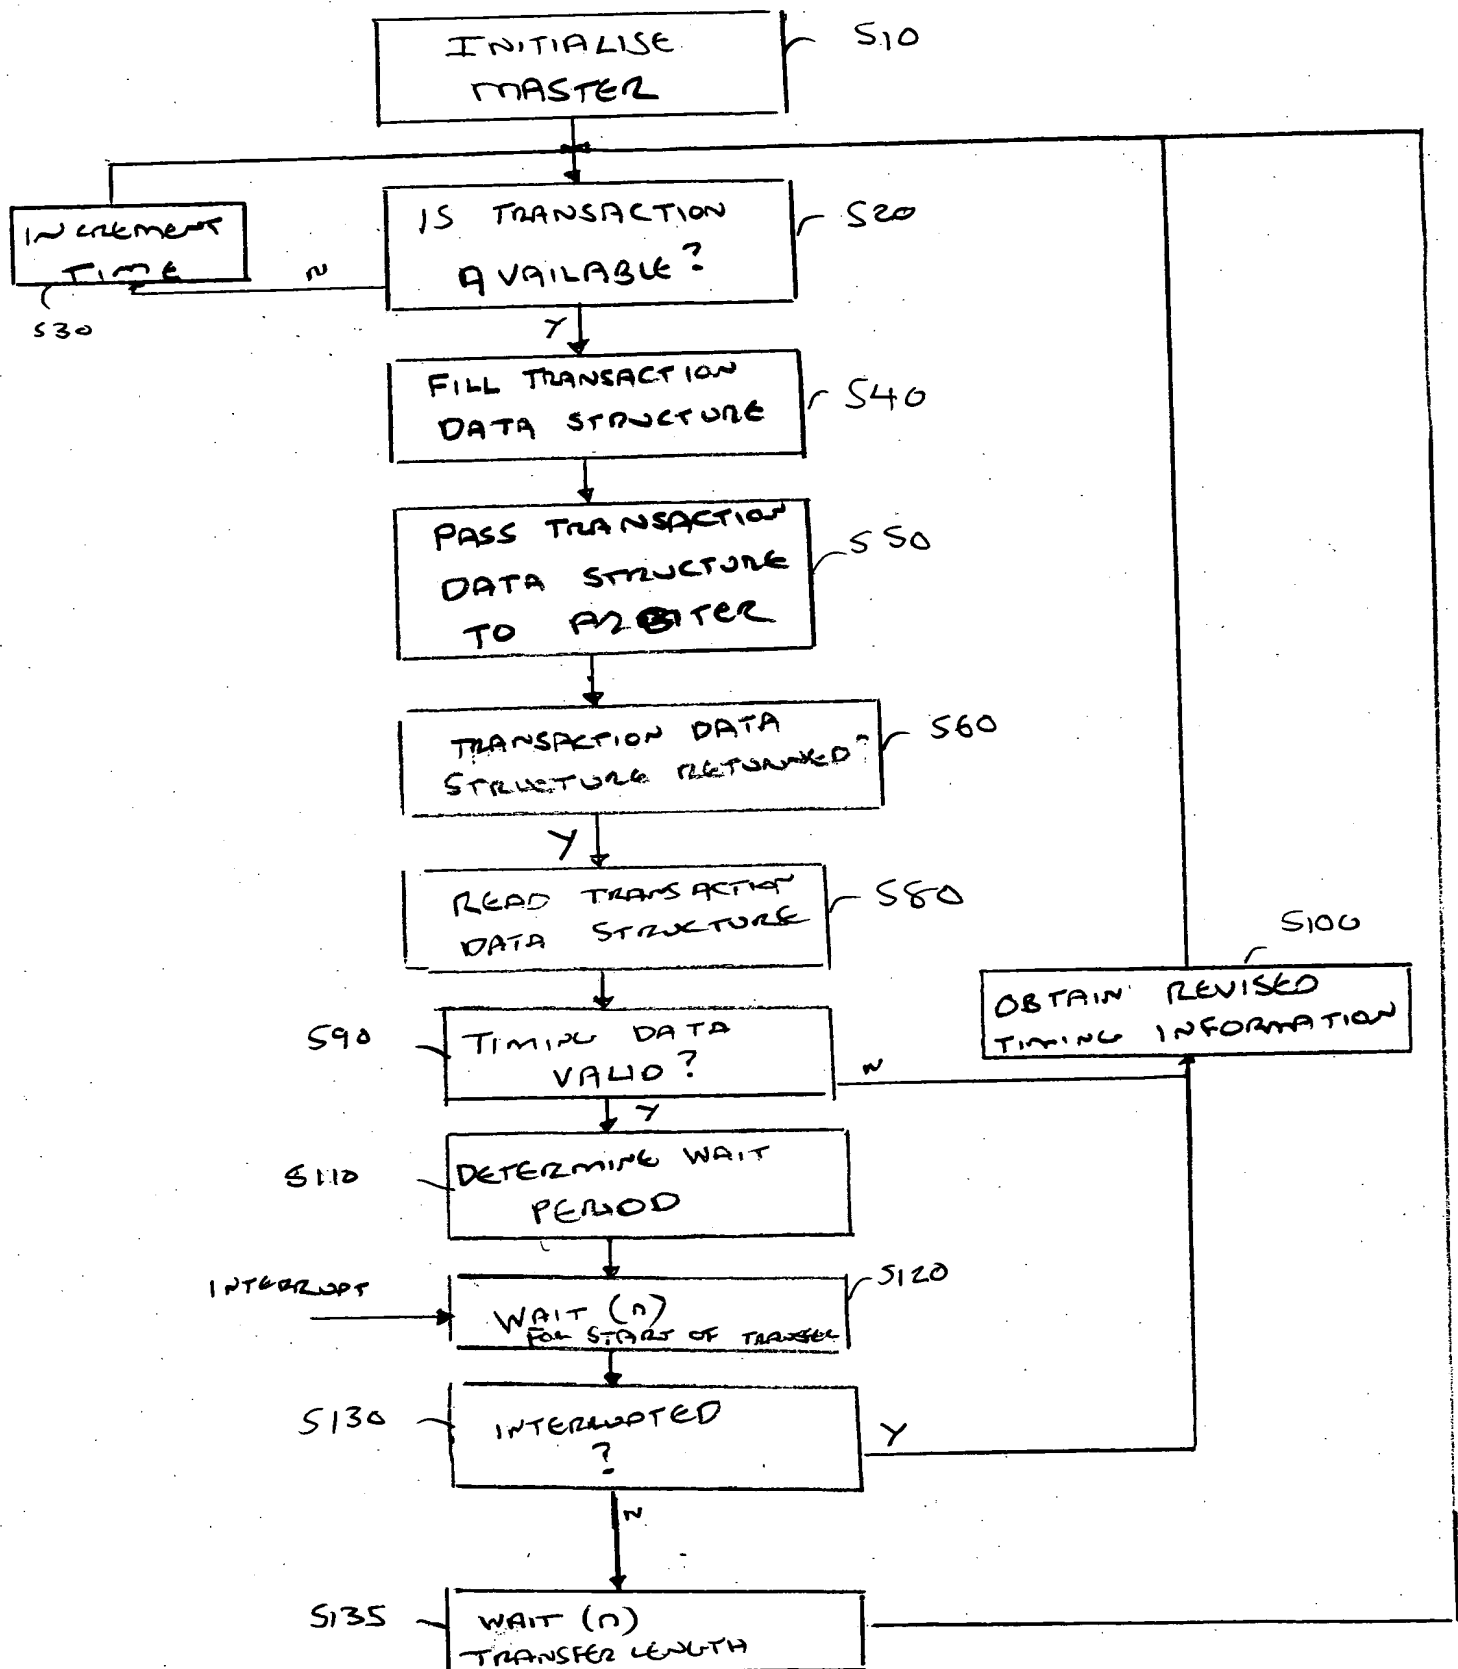 INITIALISE
MASTER
S10
INCREMENT
TIME
S30
N
IS TRANSACTION
AVAILABLE?
S20
Y
FILL TRANSACTION
DATA STRUCTURE
S40
PASS TRANSACTION
DATA STRUCTURE
TO ARBITER
S50
TRANSACTION DATA
STRUCTURE RETURNNED?
S60
Y
READ TRANSACTION
DATA STRUCTURE
S80
S100
OBTAIN REVISED
TIMING INFORMATION
S90
TIMING DATA
VALID?
N
Y
S110
DETERMINE WAIT
PERIOD
INTERRUPT
S120
WAIT (n)
FOR START OF TRANSFER
S130
INTERRUPTED
?
Y
N
S135
WAIT (n)
TRANSFER LENGTH